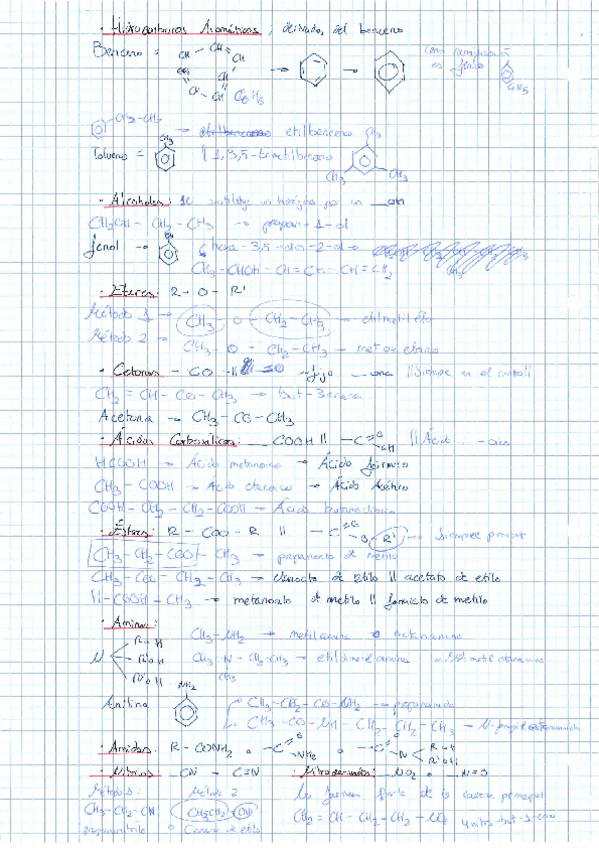 · Hidrocarburos Aromáticos; derivados del benceno
Benceno = CH CH CH CH CH CH C6H6 como ramificación es fenilo C6H5
CH2-CH3 → etilbenceno
Tolueno = CH3 1,3,5-trimetilbenceno CH3 CH3 CH3
· Alcoholes: Se sustituye un hidrógeno por un _OH
CH2OH - CH2 - CH3 → propan-1-ol
fenol → OH hexa-3,5-dien-2-ol →
CH3-CHOH-CH=CH-CH=CH2
· Éteres: R-O-R'
Método 1 → CH3 - O - CH2-CH3 → etilmetil éter
Método 2 → CH3 - O - CH2-CH3 → metoxietano
· Cetonas - CO - || =O → fijo _ona ||Siempre en el centro||
CH2 = CH - CO - CH3 → but-3-enona
Acetona → CH3 - CO - CH3
· Ácidos Carboxílicos: _COOH || -C =O OH ||Ácido ... -oico
HCOOH → Ácido metanoico → Ácido fórmico
CH3 - COOH → Ácido etanoico → Ácido Acético
COOH - CH2 - CH2 - COOH → Ácido butanodioico
· Ésteres: R - COO - R || - C =O O-R' → Siempre
CH3-CH2-COO - CH3 → propanoato de metilo
CH3 - COO - CH2 - CH3 → etanoato de etilo || acetato de etilo
H-COOH-CH3 → metanoato de metilo || formiato de metilo
· Aminas:
N R o H R' o H R'' o H
CH3-NH2 → metilamina o metanamina
CH3-N-CH2-CH3 → etildimetilamina
CH3
Anilina NH2
CH3-CH2-CO-NH2 → propanamida
CH3-CO-NH-CH2-CH2-CH3 → N-propiletanamida
· Amidas: R-CONH2 o -C =O NH2 o -C =O N R o H R' o H
· Nitrilos _CN → C≡N · Nitroderivados: _NO2 o _N=O
Método 1: Método 2 No forman parte de la cadena principal
CH3-CH2-CN CH3CH2-CN CH2=CH-CH2-CH2-NO2 4-nitro-but-1-eno
propanonitrilo o Cianuro de etilo